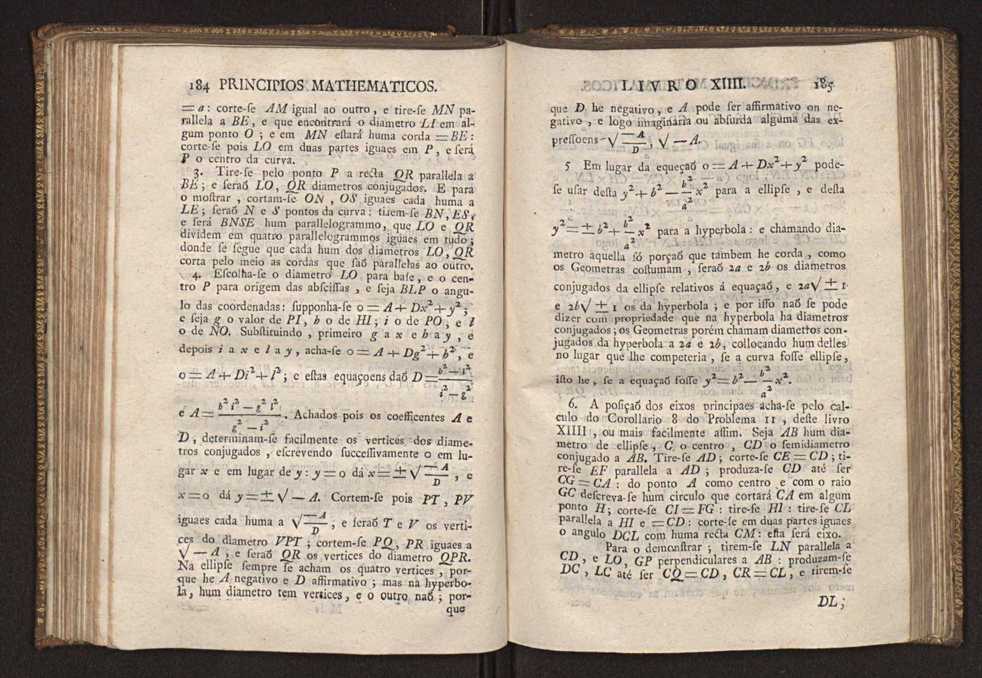 184 PRINCIPIOS MATHEMATICOS.
= a: corte-ſe AM igual ao outro, e tire-ſe MN pa-
rallela a BE, e que encontrará o diametro LI em al-
gum ponto O; e em MN eſtará huma corda = BE:
corte-ſe pois LO em duas partes iguaes em P, e ſerá
P o centro da curva.
3. Tire-ſe pelo ponto P a recta QR parallela a
BE; e ſeraõ LO, QR diametros conjugados. E para
o moſtrar, cortam-ſe ON, OS iguaes cada huma a
LE; ſeraõ N e S pontos da curva: tirem-ſe BN, ES,
e ſerá BNSE hum parallelogrammo, que LO e QR
dividem em quatro parallelogrammos iguaes em tudo;
donde ſe ſegue que cada hum dos diametros LO, QR
corta pelo meio as cordas que ſaõ parallelas ao outro.
4. Eſcolha-ſe o diametro LO para baſe, e o cen-
tro P para origem das abſciſſas, e ſeja BLP o angu-
lo das coordenadas: ſupponha-ſe o = A + Dx² + y²;
e ſeja g o valor de PI, b o de HI; i o de PO; e l
o de NO. Subſtituindo, primeiro g a x e b a y, e
depois i a x e l a y, acha-ſe o = A + Dg² + b², e
o = A + Di² + l²; e eſtas equaçoens daõ D = (b² − l²)/(i² − g²)
e A = (b² i² − g² l²)/(g² − i²). Achados pois os coefficentes A e
D, determinam-ſe facilmente os vertices dos diame-
tros conjugados, eſcrevendo ſucceſſivamente o em lu-
gar x e em lugar de y: y = o dá x = ± √ −A/D, e
x = o dá y = ± √ − A. Cortem-ſe pois PT, PV
iguaes cada huma a √ −A/D, e ſeraõ T e V os verti-
ces do diametro VPT; cortem-ſe PQ, PR iguaes a
√ − A, e ſeraõ QR os vertices do diametro QPR.
Na ellipſe ſempre ſe acham os quatro vertices, por-
que he A negativo e D affirmativo; mas na hyperbo-
la, hum diametro tem vertices, e o outro naõ; por-
que
LIVRO XIIII. 185
que D he negativo, e A pode ſer affirmativo ou ne-
gativo, e logo imaginaria ou abſurda alguma das ex-
preſſoens √ −A/D, √ − A.
5 Em lugar da equeçaõ o = A + Dx² + y² pode-
ſe uſar deſta y² + b² − b²/a² x² para a ellipſe, e deſta
y² = ± b² + b²/a² x² para a hyperbola: e chamando dia-
metro aquella ſó porçaõ que tambem he corda, como
os Geometras coſtumam, ſeraõ 2a e 2b os diametros
conjugados da ellipſe relativos á equaçaõ, e 2a√ ± 1
e 2b√ ± 1 os da hyperbola; e por iſſo naõ ſe pode
dizer com propriedade que na hyperbola ha diametros
conjugados; os Geometras porém chamam diamettos con-
jugados da hyperbola a 2a e 2b, collocando hum delles
no lugar que lhe competeria, ſe a curva foſſe ellipſe,
iſto he, ſe a equaçaõ foſſe y² = b² − b²/a² x².
6. A poſiçaõ dos eixos principaes acha-ſe pelo cal-
culo do Corollario 8 do Problema 11, deſte livro
XIIII, ou mais facilmente aſſim. Seja AB hum dia-
metro de ellipſe, C o centro, CD o ſemidiametro
conjugado a AB. Tire-ſe AD; corte-ſe CE = CD; ti-
re-ſe EF parallela a AD; produza-ſe CD até ſer
CG = CA: do ponto A como centro e com o raio
GC deſcreva-ſe hum circulo que cortará CA em algum
ponto H; corte-ſe CI = FG: tire-ſe HI: tire-ſe CL
parallela a HI e = CD: corte-ſe em duas partes iguaes
o angulo DCL com huma recta CM: eſta ſerá eixo.
Para o demonſtrar; tirem-ſe LN parallela a
CD, e LO, GP perpendiculares a AB: produzam-ſe
DC, LC até ſer CQ = CD, CR = CL, e tirem-ſe
DL;